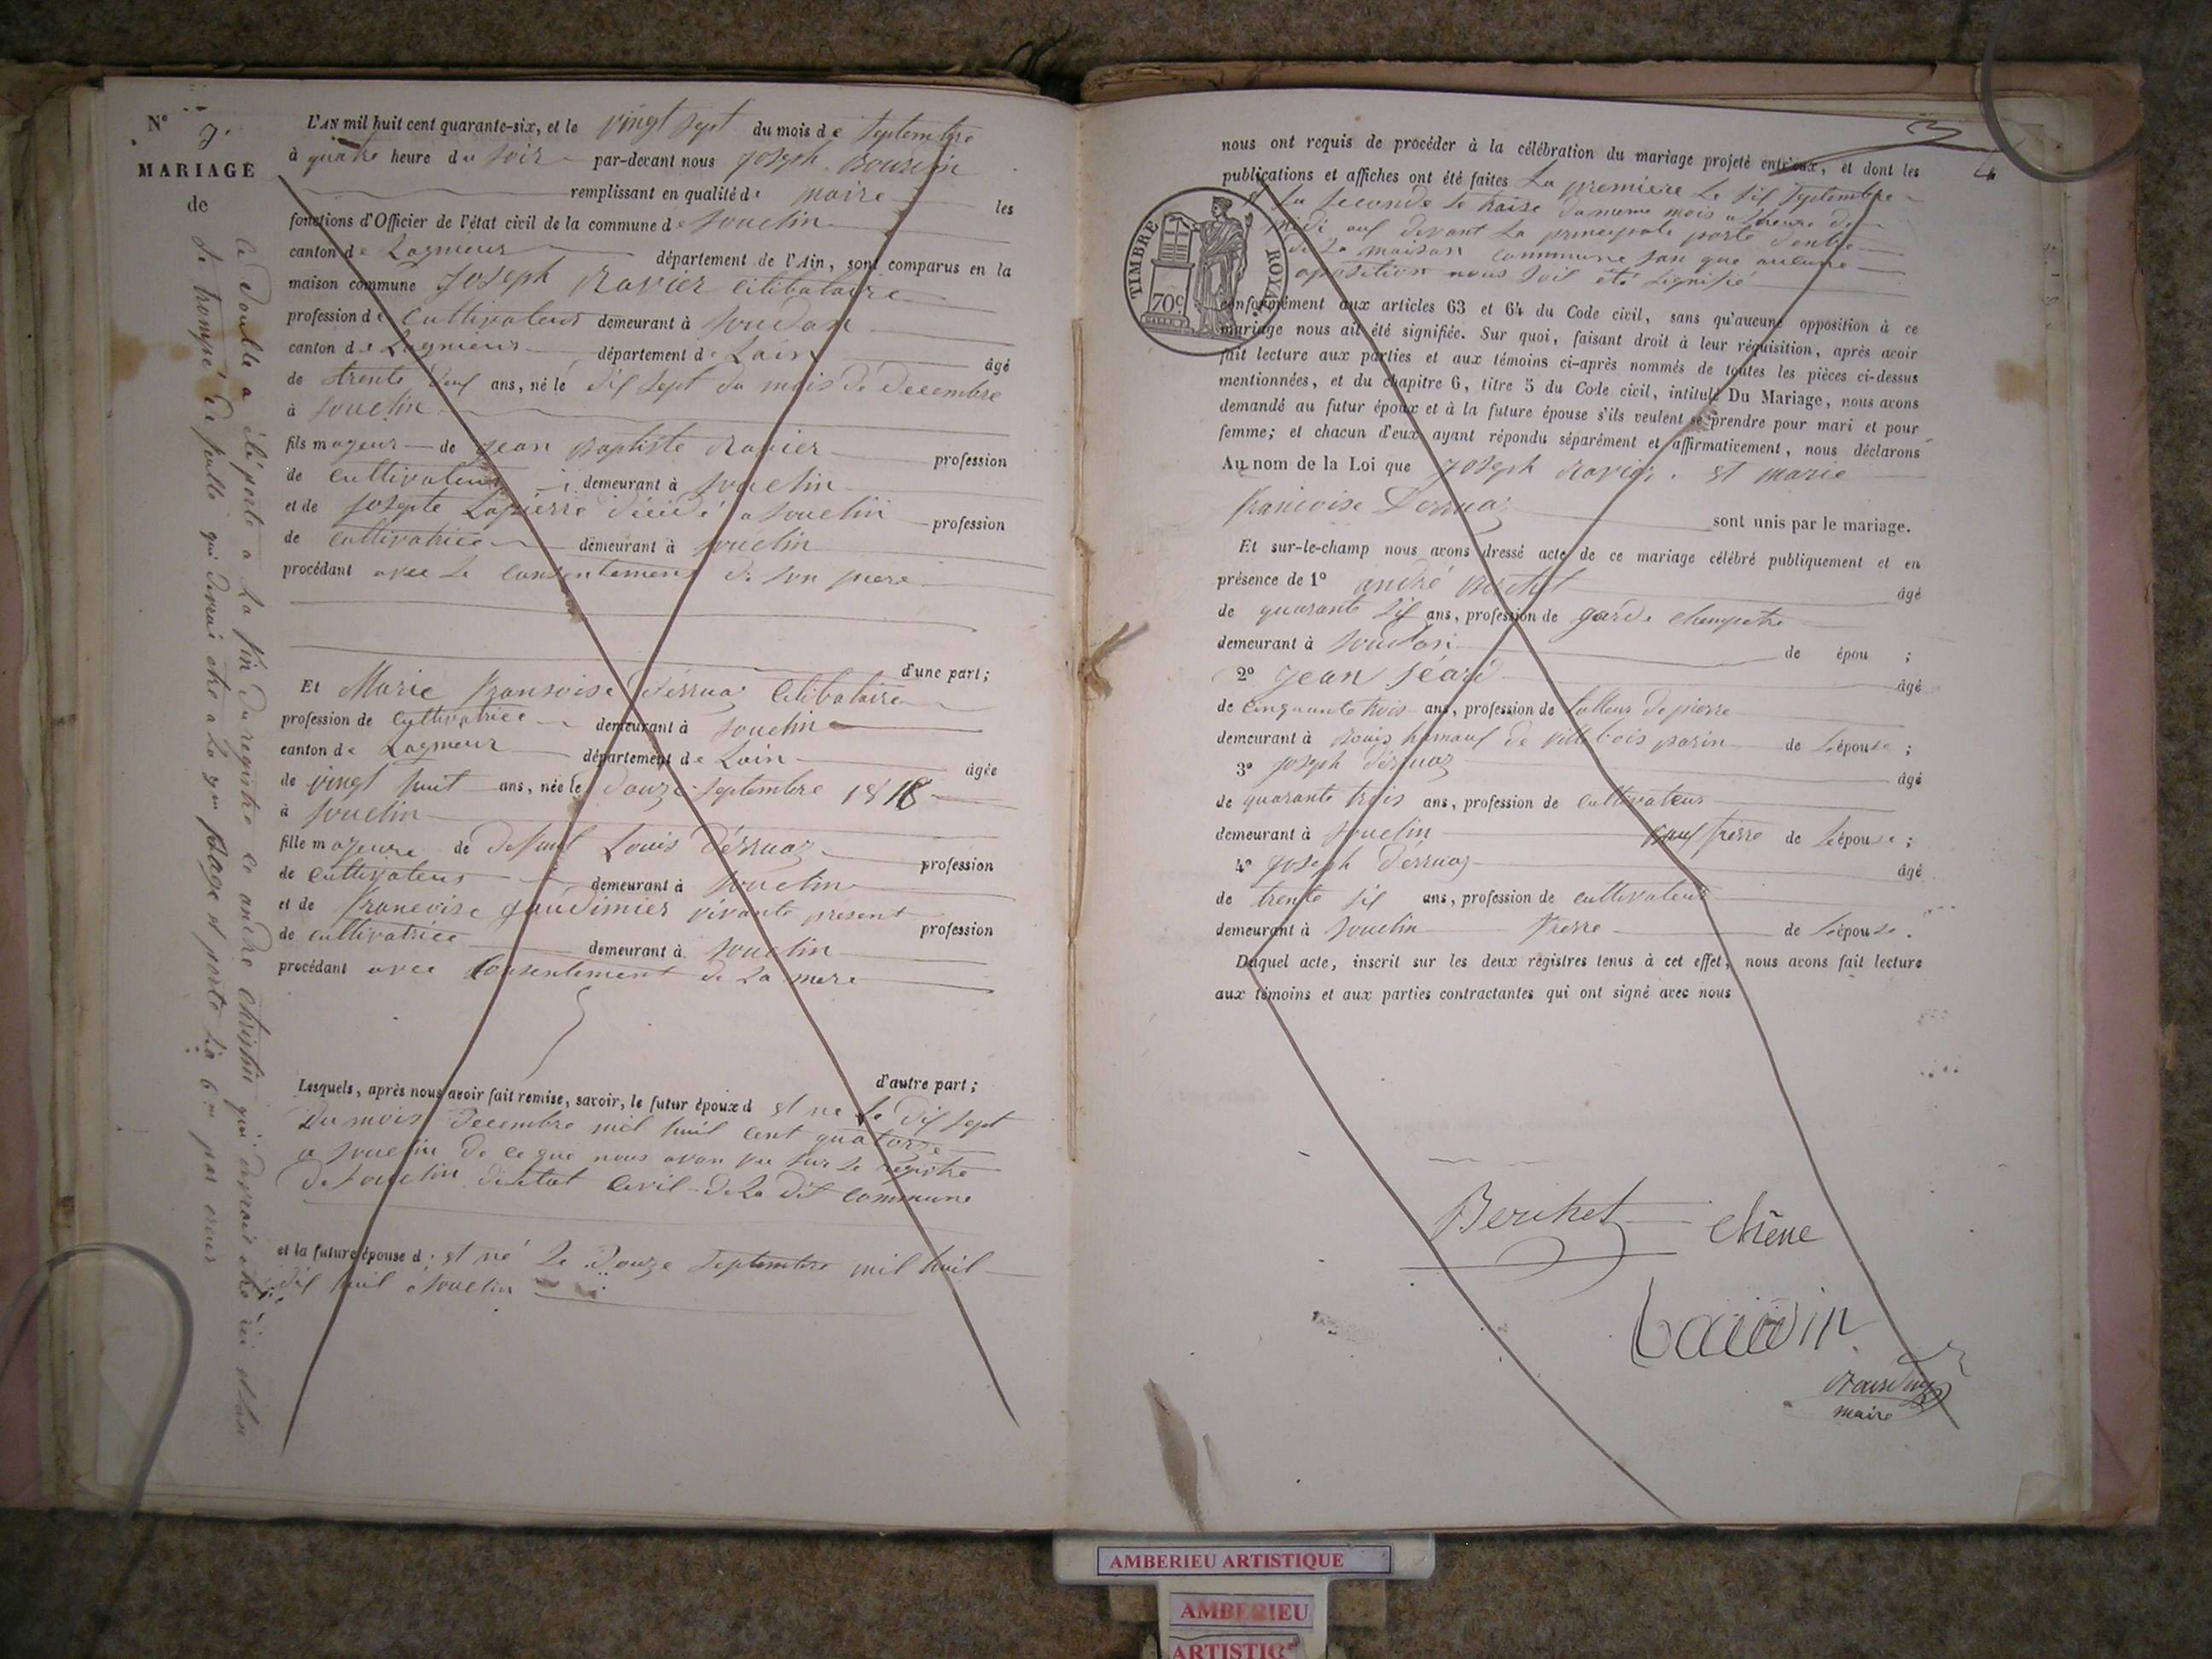 N° 7
MARIAGE
de
L'AN mil huit cent quarante-six, et le vingt sept du mois de Septembre
à quatre heure du soir par-devant nous joseph
remplissant en qualité de maire les
fonctions d'Officier de l'état civil de la commune de Souclin
canton de Lagnieux département de l'Ain, sont comparus en la
maison commune Joseph Ravier célibataire
profession de cultivateur demeurant à Soudon
canton de Lagnieux département de Lain âgé
de trente ans, né le dix sept du mois de decembre
à Souclin
fils majeur de jean Baptiste Ravier profession
de cultivateur demeurant à Souclin
et de josepte Lapierre décédé a Souclin profession
de cultivatrice demeurant à Souclin
procédant avec le consentement de son pere
d'une part;
Et Marie fransoise Dérruaz célibataire
profession de cultivatrice demeurant à Souclin
canton de Lagnieux département de Lain âgée
de vingt huit ans, née le douze Septembre 1818
à Souclin
fille majeure de defunt Louis Dérruaz profession
de cultivateur demeurant à Souclin
et de francoise gaudimier vivante present profession
de cultivatrice demeurant à Souclin
procédant avec consentement de La mere
d'autre part;
Lesquels, après nous avoir fait remise, savoir, le futur époux d est né le dix sept
du mois decembre mil huit cent quatorze
a Souclin de ce que nous avon vu sur le registre
de Souclin de létat civil de La dit commune
et la future épouse d est né le douze Septembre mil huit
dix huit a Souclin
ce double a été porté a La fin du registre
Se trompé de qui devrai etre a La page et porté
4
nous ont requis de procéder à la célébration du mariage projeté entr'eux, et dont les
publications et affiches ont été faites La premiere Le six Septembre
La seconde le traise du meme mois a heure de
midi devant La principale porte dentre
de La maison commune san que aucune
oposition nous soit été signifié
TIMBRE ROYAL
70c
conformément aux articles 63 et 64 du Code civil, sans qu'aucune opposition à ce
mariage nous ait été signifiée. Sur quoi, faisant droit à leur réquisition, après avoir
fait lecture aux parties et aux témoins ci-après nommés de toutes les pièces ci-dessus
mentionnées, et du chapitre 6, titre 5 du Code civil, intitulé Du Mariage, nous avons
demandé au futur époux et à la future épouse s'ils veulent se prendre pour mari et pour
femme; et chacun d'eux ayant répondu séparément et affirmativement, nous déclarons
Au nom de la Loi que joseph Ravier et marie
francoise Derruaz sont unis par le mariage.
Et sur-le-champ nous avons dressé acte de ce mariage célébré publiquement et en
présence de 1° andré Berthet âgé
de quarante six ans, profession de garde champetre
demeurant à Soudon de épou ;
2° jean âgé
de cinquante trois ans, profession de talleur de pierre
demeurant à hamauf de villebois de Lépouse ;
3° joseph Dérruaz âgé
de quarante trois ans, profession de cultivateur
demeurant à Souclin frerre de Lépouse ;
4° joseph Dérruaz âgé
de trente six ans, profession de cultivateur
demeurant à Souclin frerre de Lépouse.
Duquel acte, inscrit sur les deux régistres tenus à cet effet, nous avons fait lecture
aux témoins et aux parties contractantes qui ont signé avec nous
Berthet chêne
maire
AMBERIEU ARTISTIQUE
AMBERIEU
ARTISTIQ